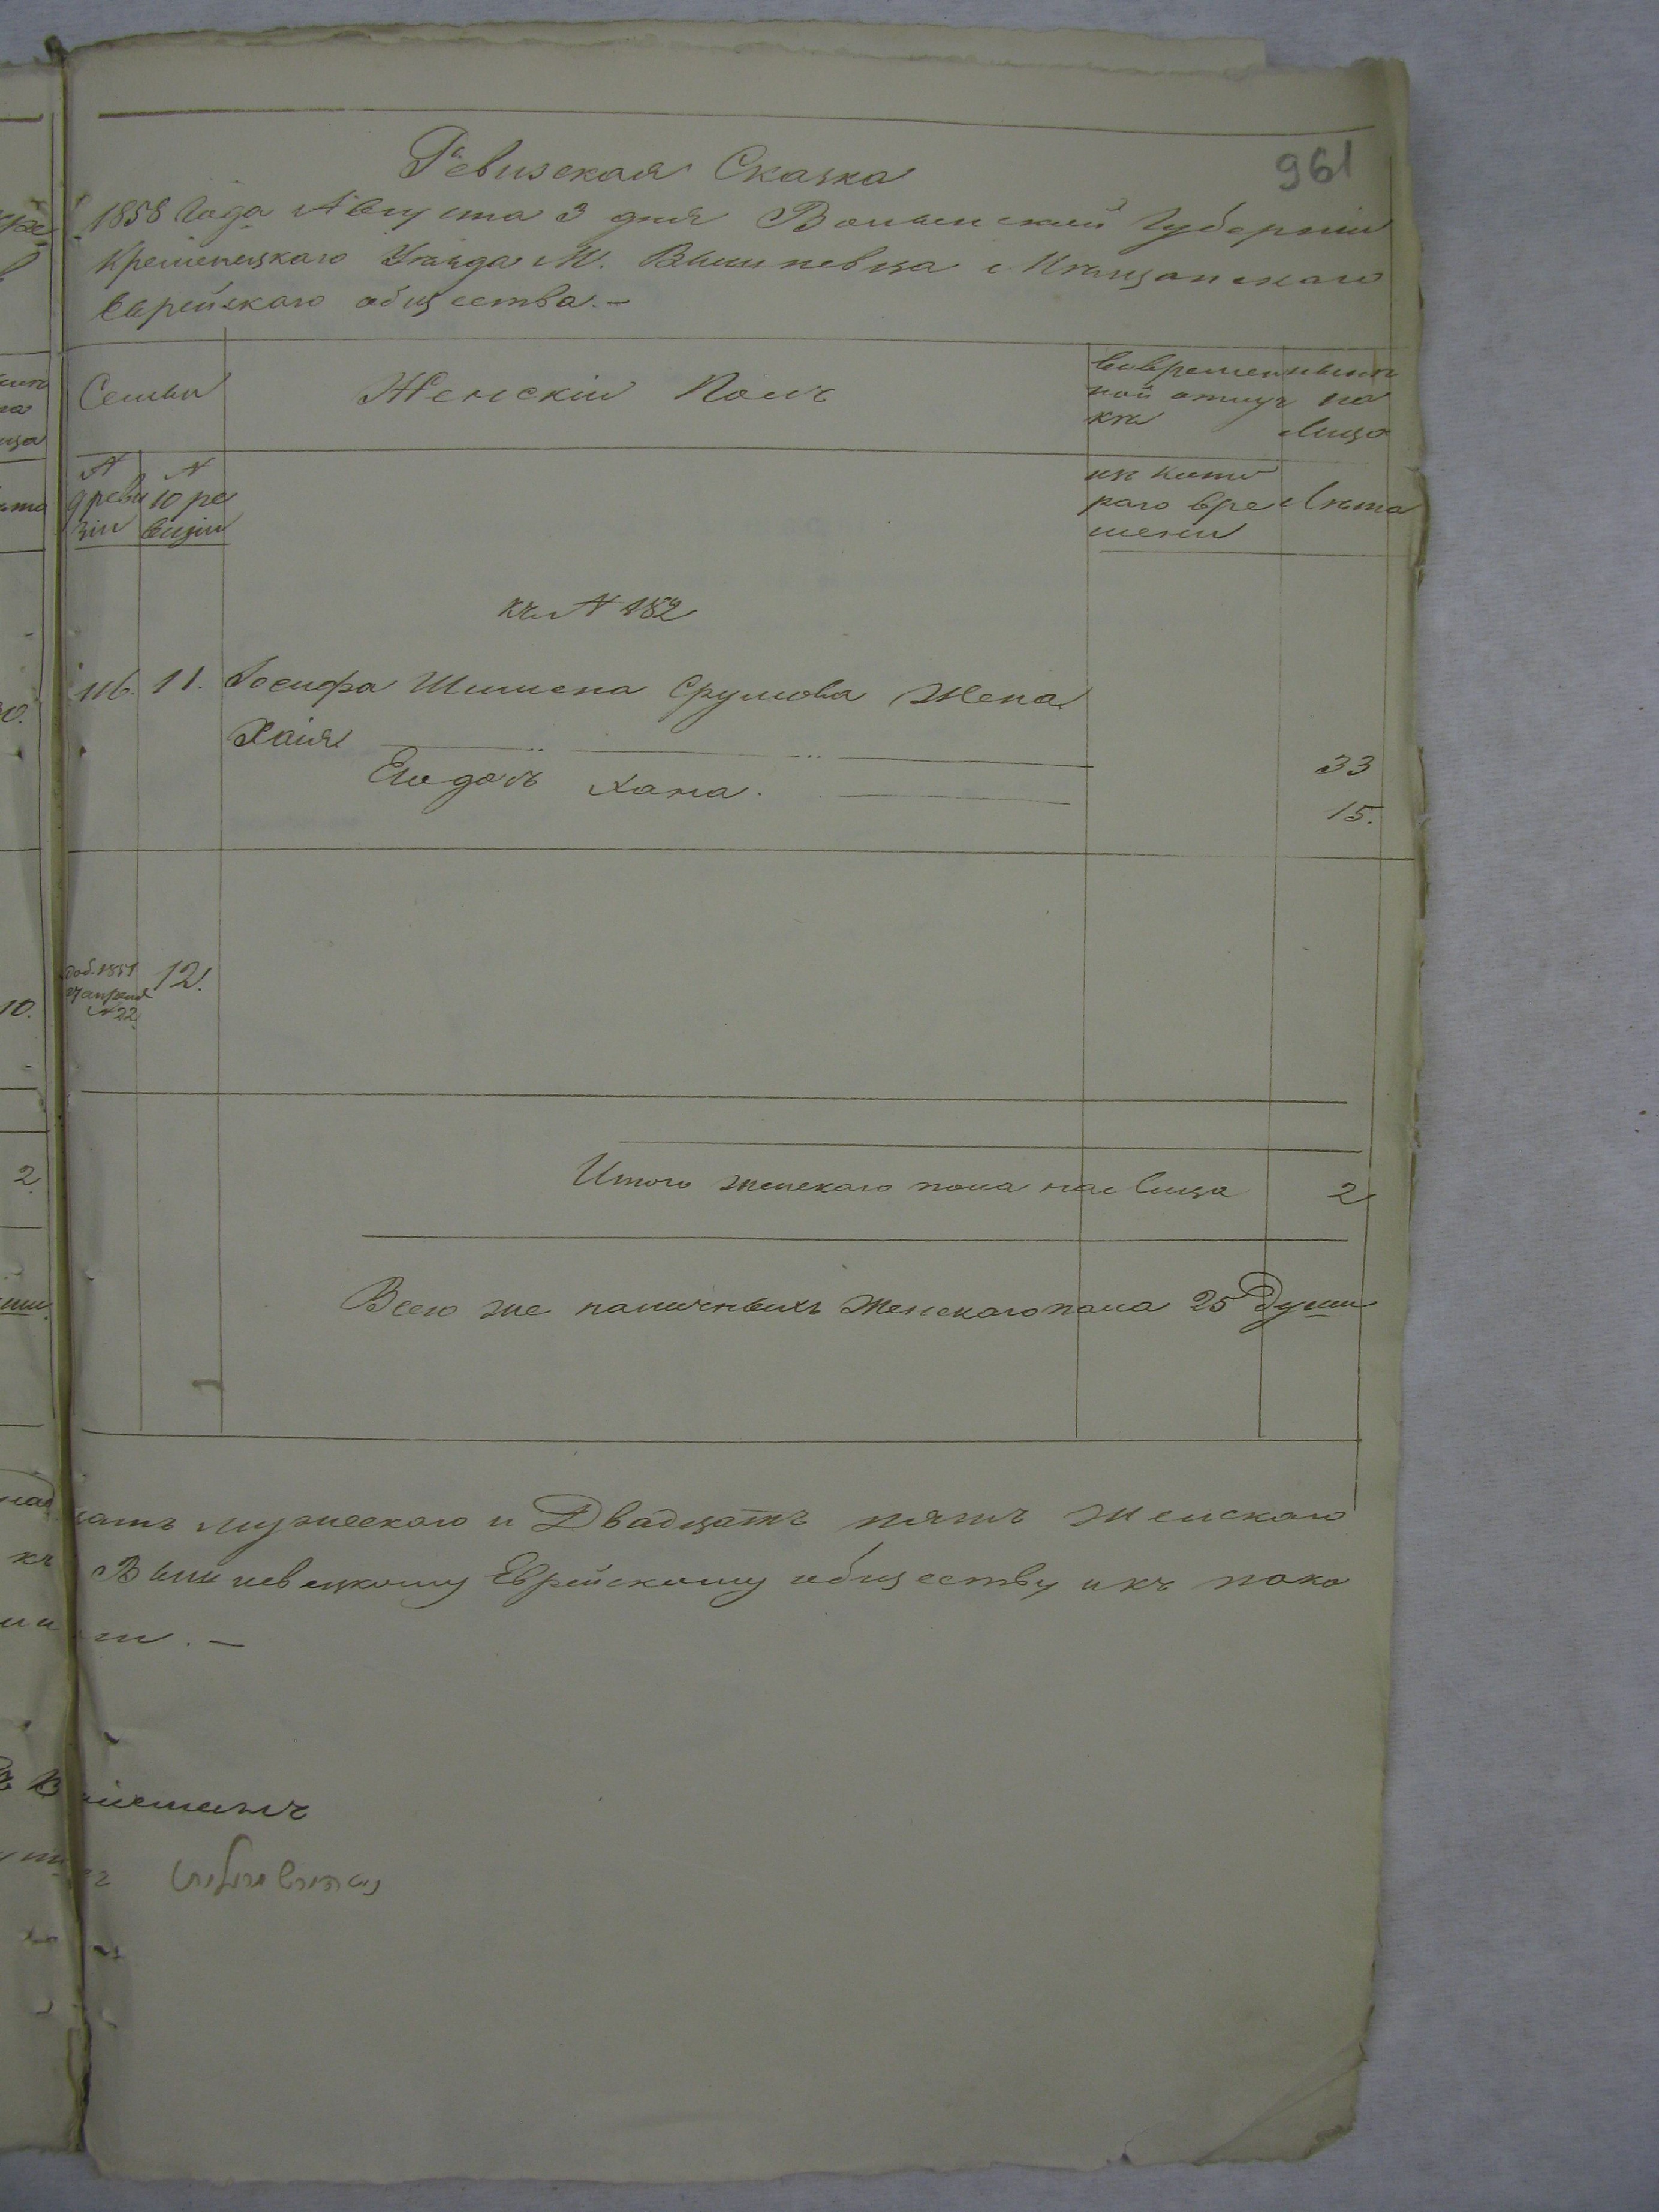 961
Ревизская Сказка
1858 Года Августа 3 дня Волынской Губернии
Кременецкаго Уѣзда М. Вишневца Мѣщанскаго
Еврейскаго общества.—
Семьи
Женскій Полъ
Вовремен
ной отлуч
кѣ
нынѣ
на
Лицо
N
9 реви
зіи
N
10 ре
визіи
изъ кото
раго вре
мени
Лѣта
къ N 182
116. 11. Іосифа Шимена Срулиова Жена
Хаія 33
Его дочь Хана. 15.
доб. 1851
N 22
12.
Итого женскаго пола на Лицо 2
Всего же наличныхъ Женскаго пола 25 Души
цать мужескаго и Двадцать пять Женскаго
Вишневецкому Еврейскому обществу и къ пока